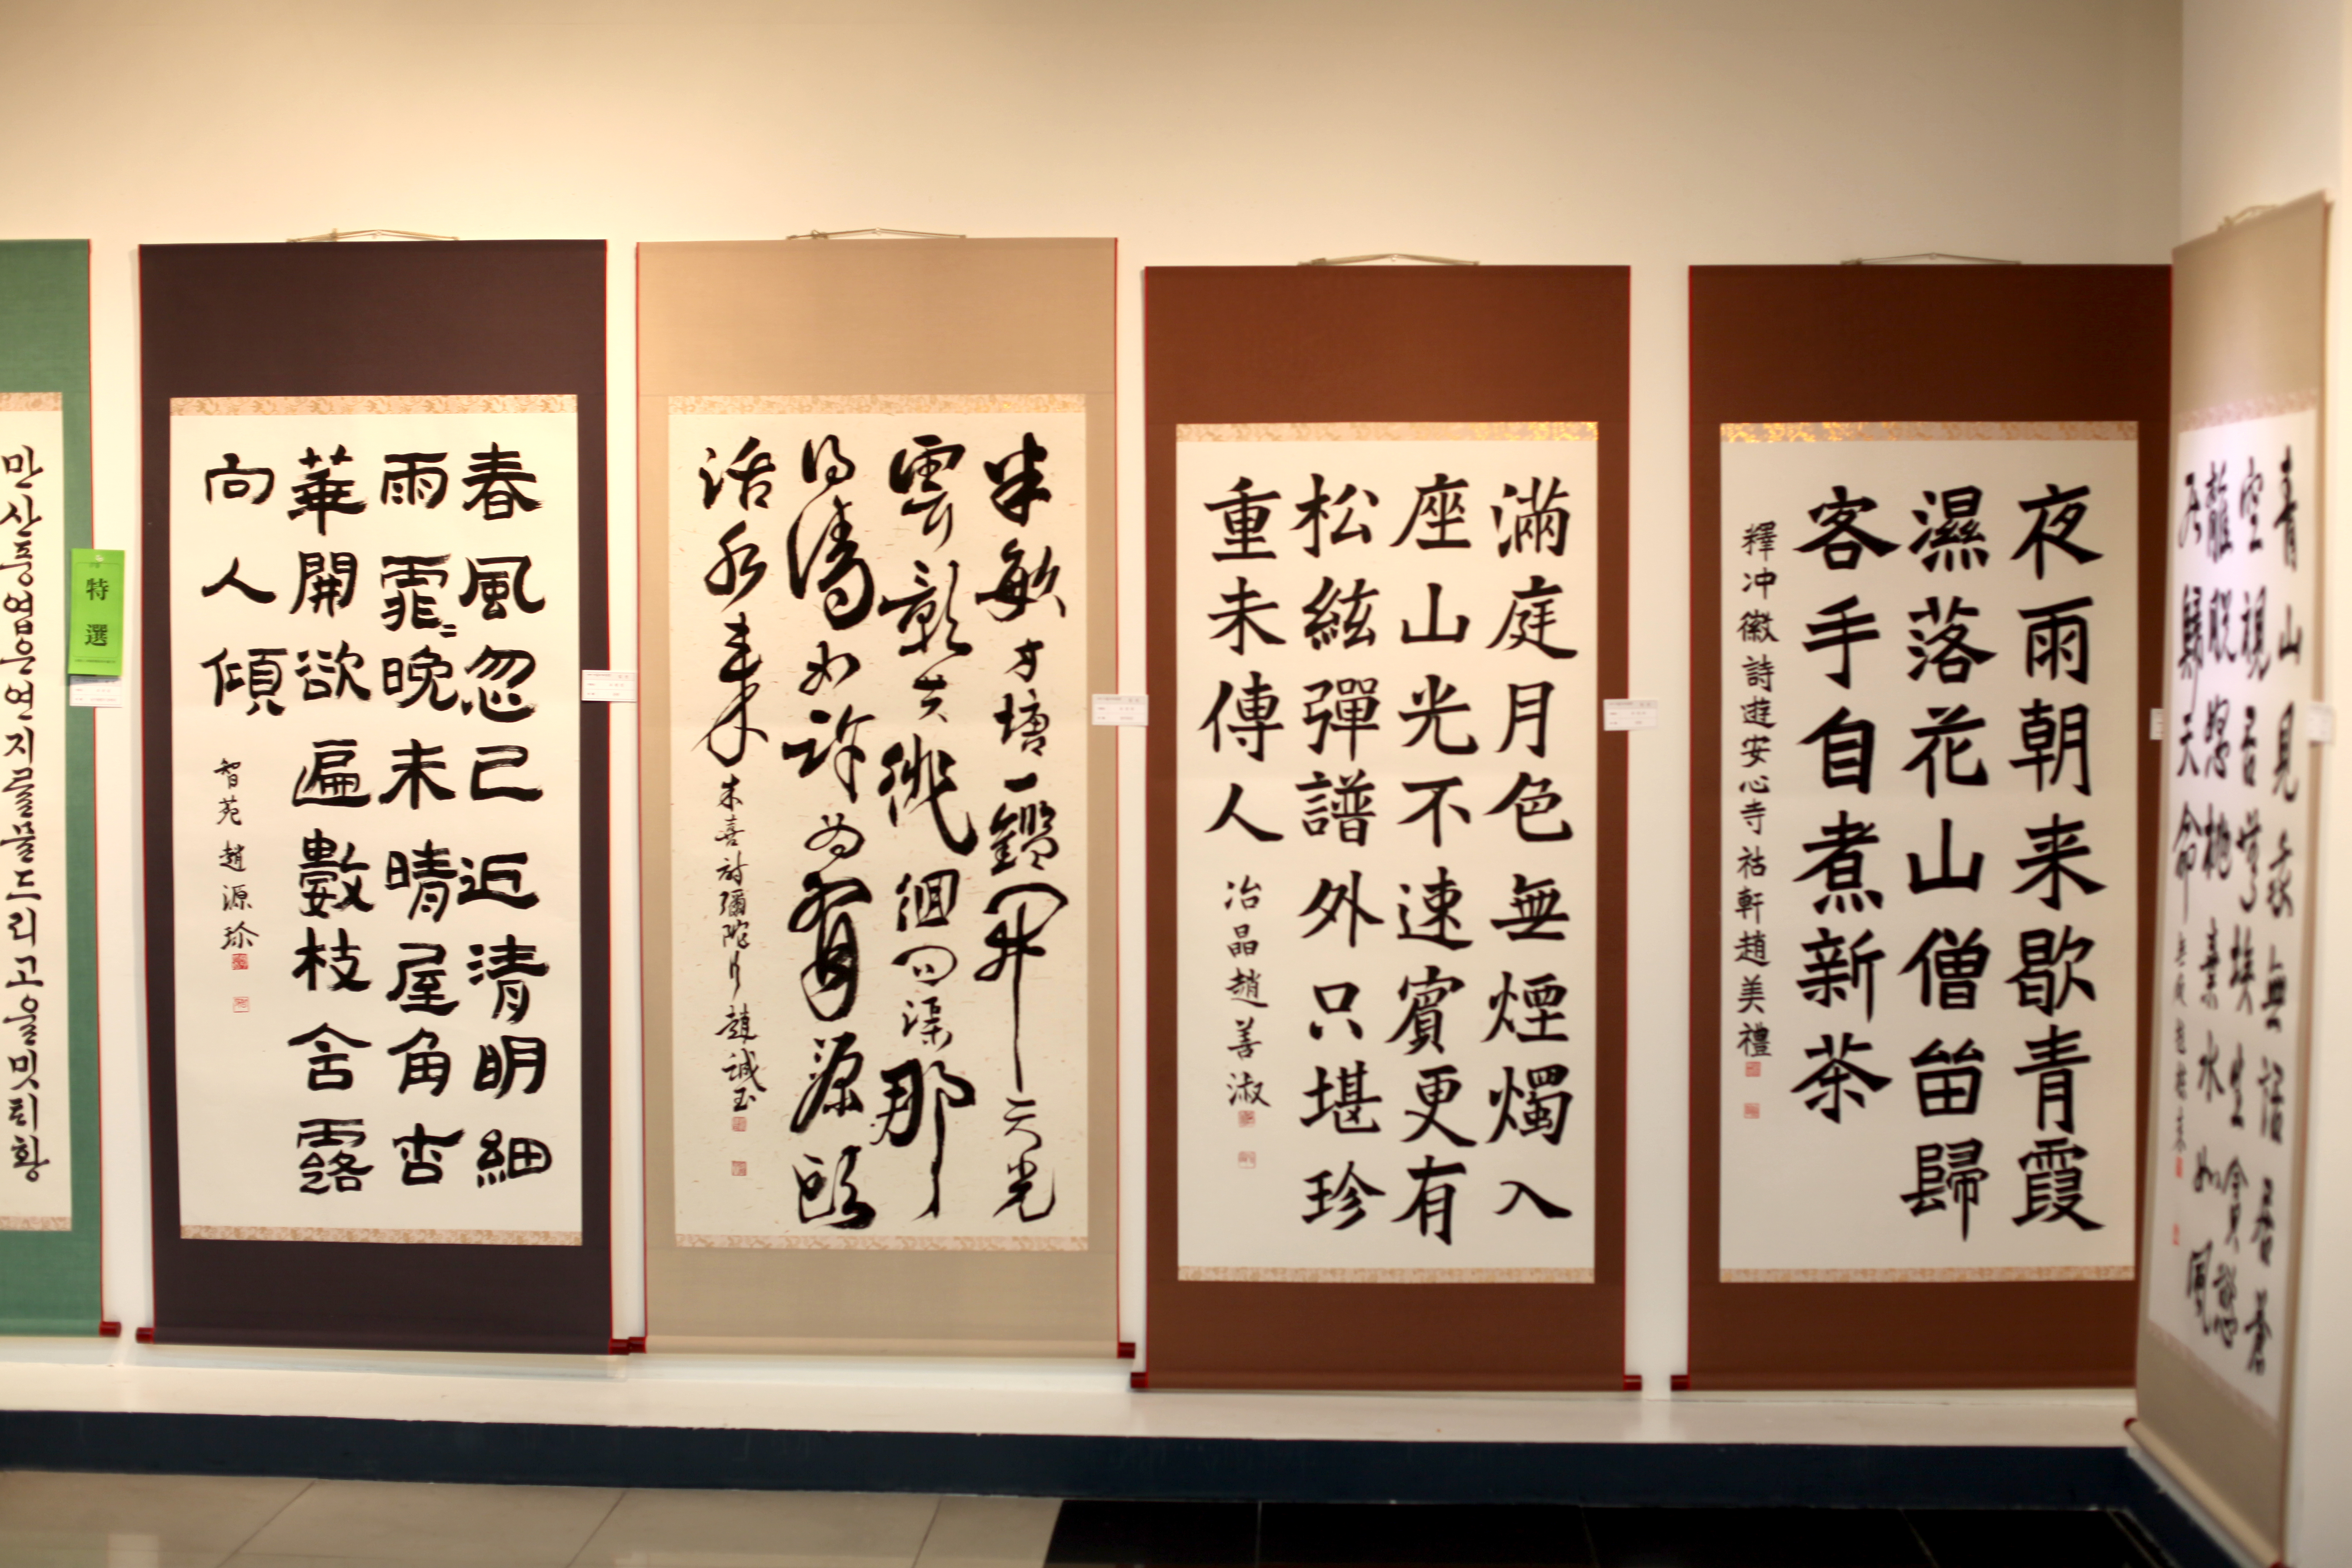 만산홍엽은연지물물드리고울밋티황
特選
春風忽已近清明細
雨霏〻晚未晴屋角杏
華開欲遍數枝含露
向人傾
智苑 趙源珍
半畝方塘一鑑開天光
雲影共徘徊問渠那
得清如許為有源頭
活水来
朱熹 趙誠玉
滿庭月色無煙燭入
座山光不速賓更有
松絃彈譜外只堪珍
重未傳人
冶晶趙善淑
夜雨朝来歇青霞
濕落花山僧留歸
客手自煮新茶
釋冲徽詩遊安心寺 祜軒趙美禮
青山見我無語居蒼
空視吾埃生貪慾
離脫水如風
天命